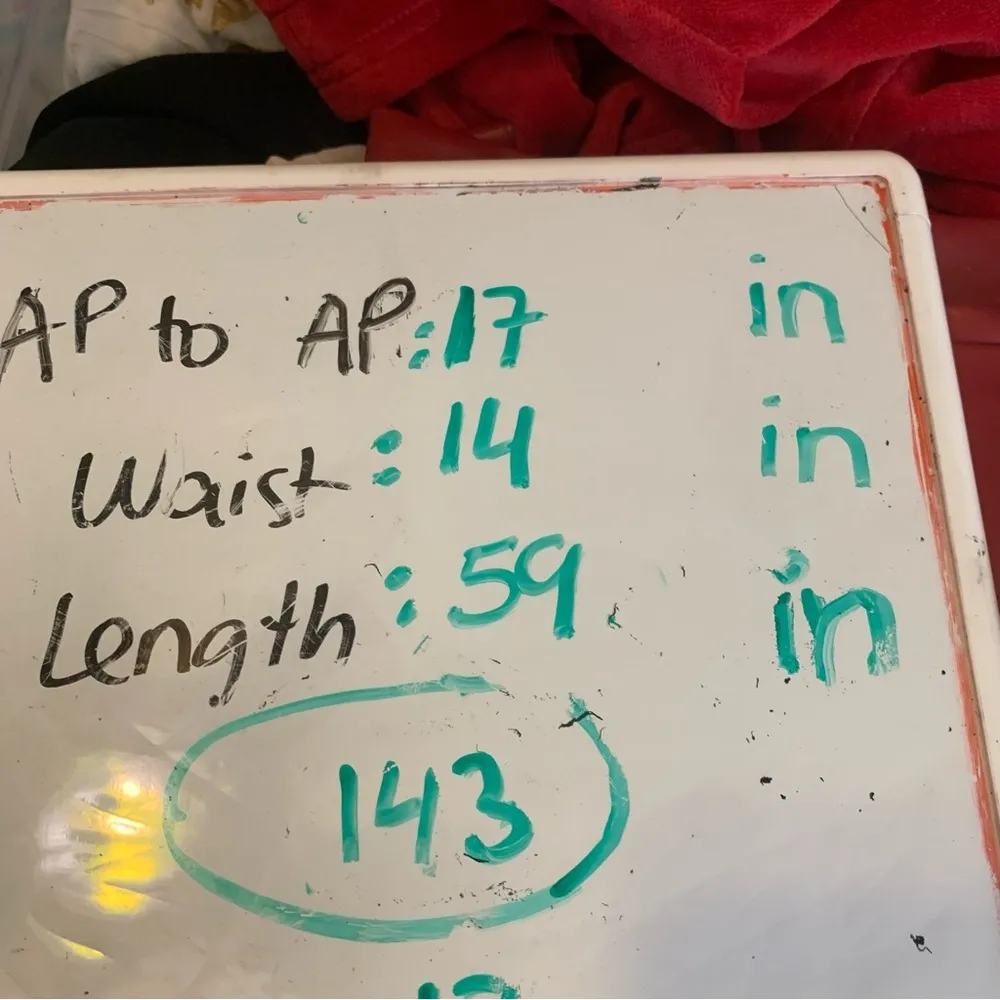 AP to AP:17 in
Waist: 14 in
Length: 59 in
143